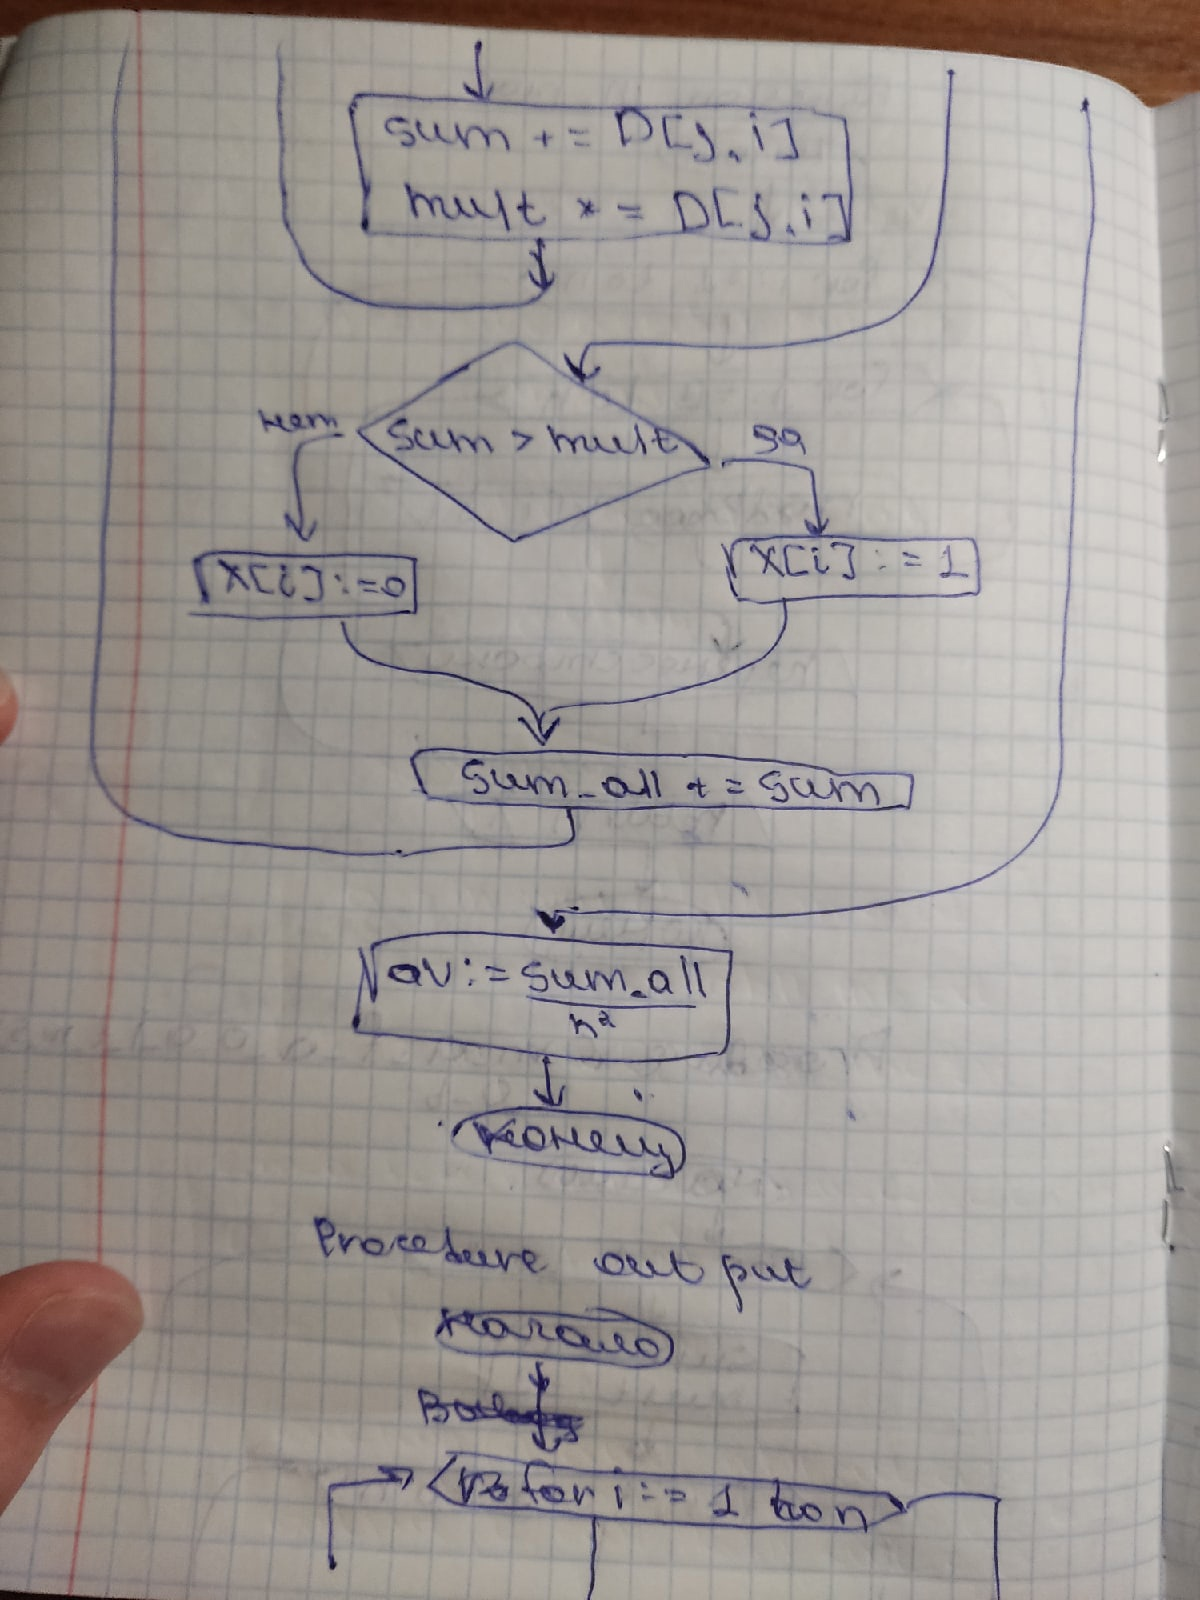 sum += D[j,i]
mult *= D[j,i]
sum > mult
нет
да
X[i] := 0
X[i] := 1
sum_all += sum
av := sum_all
n²
конец
Procedure output
начало
for i := 1 to n